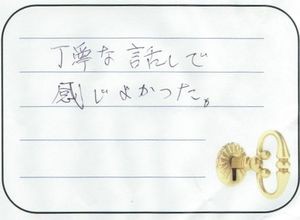 丁寧な話しで
感じよかった。